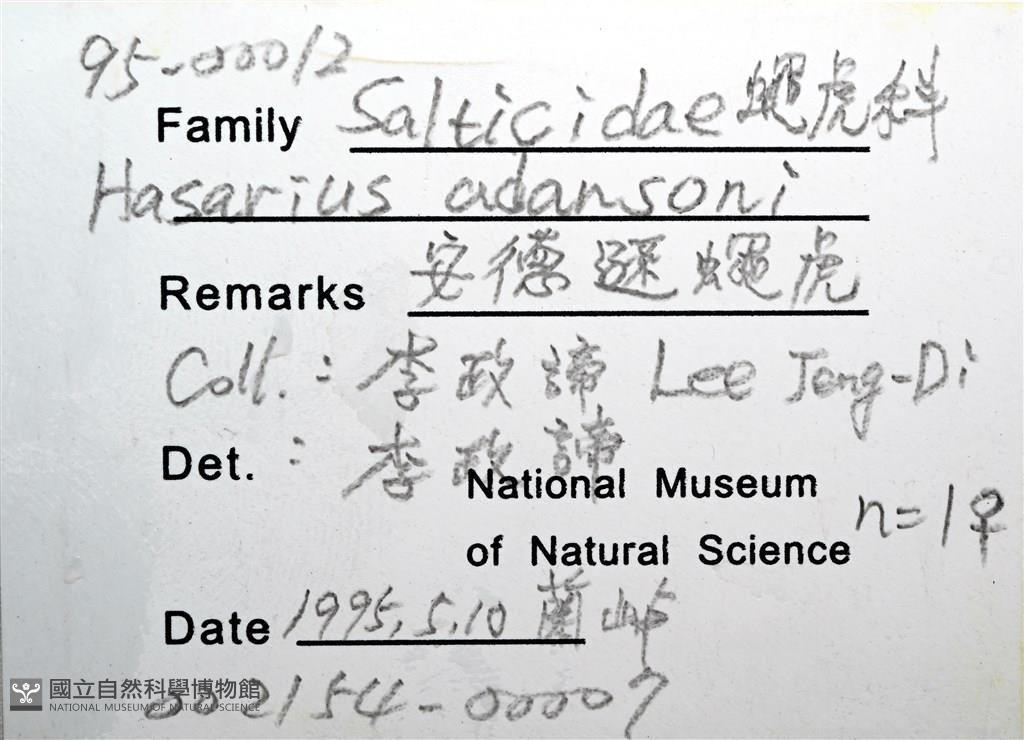 95-00012
Family Salticidae 蠅虎科
Hasarius adansoni
Remarks 安德遜蠅虎
Coll.: 李政諦 Lee Jeng-Di
Det.: 李政諦
National Museum
of Natural Science n=1♀
Date 1995.5.10 蘭嶼
002154-00007
國立自然科學博物館
NATIONAL MUSEUM OF NATURAL SCIENCE